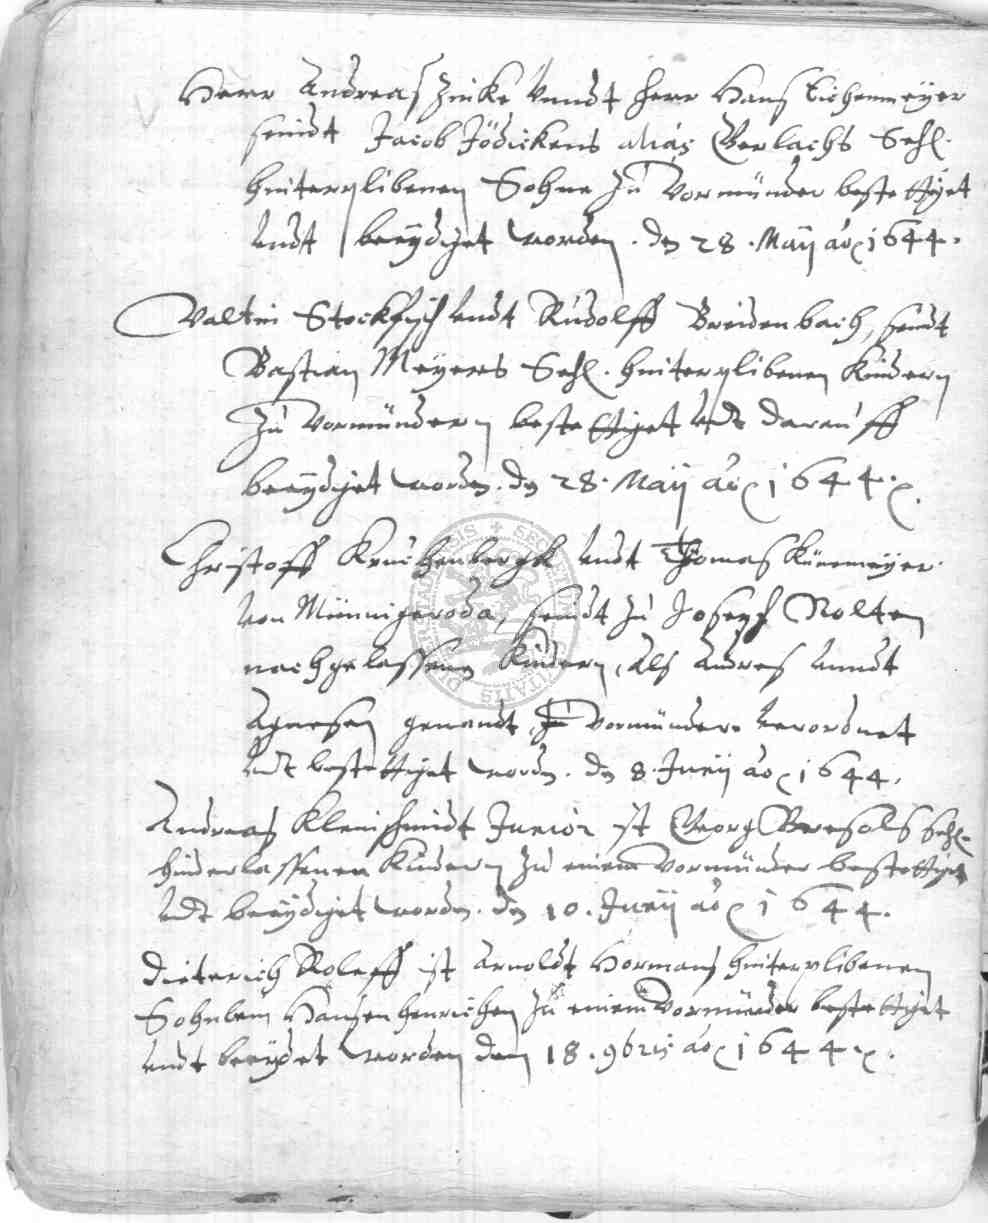 Herr Andreas Zinke vnndt Herr Hans Eichenmeyer
seindt Jacob Jödickens alias Gerlachs Sehl.
hinterplibenen Sohne zu Vormünder bestettiget
undt beeydiget worden. den 28. Maij ao 1644.
Valtin Stockfisch undt Rudolff Breidenbach, seindt
Bastian Meyers Sehl. hinterplibenen Kindern
zu Vormündern bestettiget undt darauff
beeydiget worden. den 28. Maij ao 1644.
Christoff undt Thomas
von Minnigeroda, seindt zu Joseph Nolten
nachgelassenen Kindern, Als Andres unndt
Agnesen genandt, zu Vormünder verordnet
undt bestettiget worden. den 8. Junij ao 1644.
Andreas Kleinschmidt Junior ist Georg Sehl.
hinderlassenen Kindern zu einem Vormünder bestettiget
undt beeydiget worden. den 10. Junij ao 1644.
Dieterich Roleff ist Arnoldt Hormans hinterplibenen
Sohnlein Hansen Henrichen zu einem Vormünder bestettiget
undt beeydet worden den 18. 9bris ao 1644.